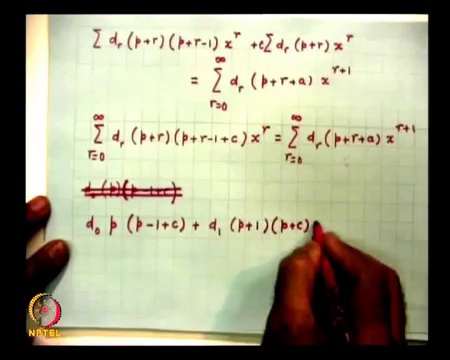 Σ d_r (p+r) (p+r-1) x^r + c Σ d_r (p+r) x^r
= Σ_{r=0}^{∞} d_r (p+r+a) x^{r+1}
Σ_{r=0}^{∞} d_r (p+r) (p+r-1+c) x^r = Σ_{r=0}^{∞} d_r (p+r+a) x^{r+1}
d_0 p (p-1+c) + d_1 (p+1) (p+c)
NPTEL